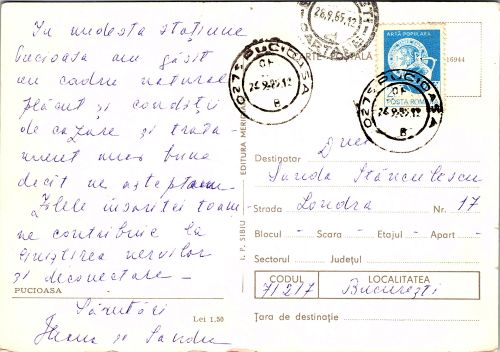 In modesta stațiune
Pucioasa am găsit
un cadru natural
plăcut și condiții
de cazare și trata-
ment mai bune
decît ne așteptam
Zilele însoritei toam-
ne contribuie la
liniștirea nervilor
și deconectare -
PUCIOASA
Sărutări
și Sandu
Lei 1,50
I. P. SIBIU
EDITURA MERIDI
26.9.85.12
CARTE POȘTALĂ
0275 PUCIOASA
24.9.85.12
B
ARTA POPULARĂ
POȘTA ROMÂ
0275 PUCIOASA
24.9.85.12
B
16944
Dnei
Destinatar Sanda Stănculescu
Strada Londra Nr. 17
Blocul - Scara - Etajul - Apart -
Sectorul Județul
CODUL LOCALITATEA
71217 București
Țara de destinație